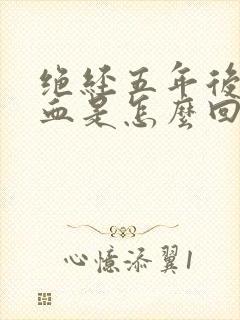 绝经五年後
血是怎麼回
心憶添翼1